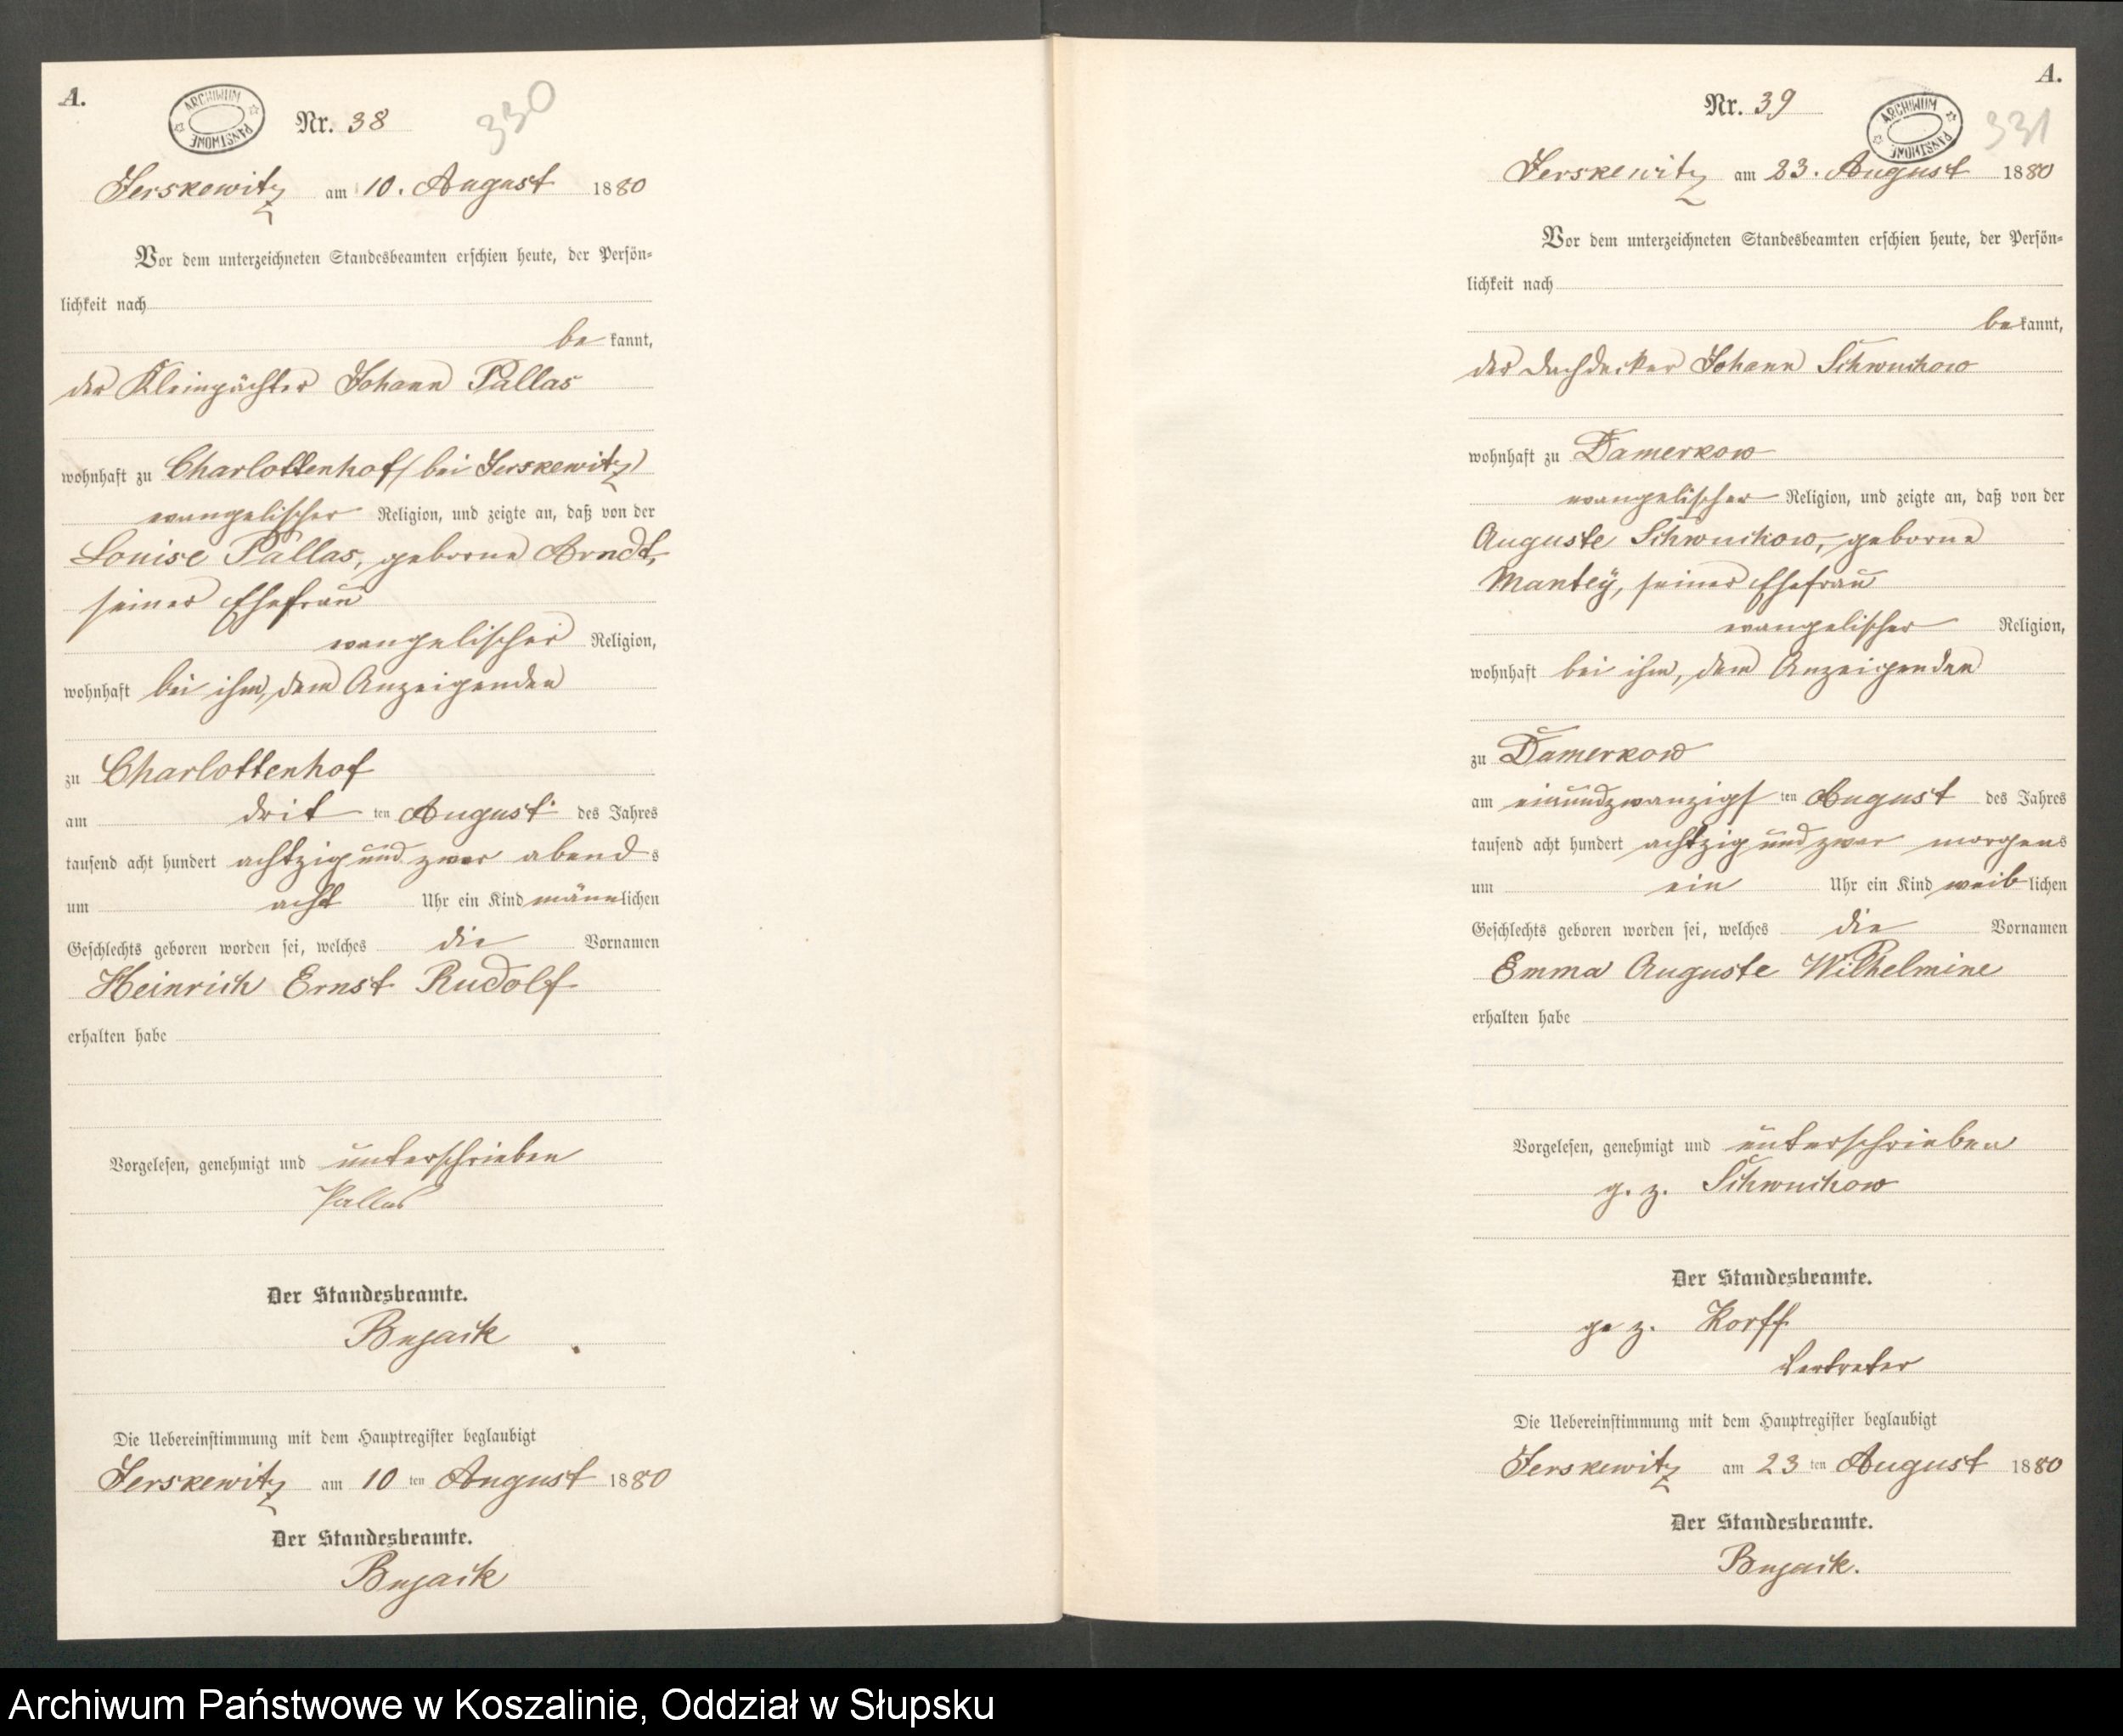 A.
ARCHIWUM PAŃSTWOWE
Nr. 38
330
Jerskewitz am 10. August 1880
Vor dem unterzeichneten Standesbeamten erschien heute, der Persön=
lichkeit nach
be kannt,
der Kleinpächter Johann Pallas
wohnhaft zu Charlottenhof (bei Jerskewitz)
evangelischer Religion, und zeigte an, daß von der
Louise Pallas, geborne Arndt,
seiner Ehefrau
evangelischer Religion,
wohnhaft bei ihm, dem Anzeigenden
zu Charlottenhof
am dritten August des Jahres
tausend acht hundert achtzig und zwar abends
um acht Uhr ein Kind männlichen
Geschlechts geboren worden sei, welches die Vornamen
Heinrich Ernst Rudolf
erhalten habe
Vorgelesen, genehmigt und unterschrieben
Pallas
Der Standesbeamte.
Bujack
Die Uebereinstimmung mit dem Hauptregister beglaubigt
Jerskewitz am 10ten August 1880
Der Standesbeamte.
Bujack
A.
Nr. 39
ARCHIWUM PAŃSTWOWE
331
Jerskewitz am 23. August 1880
Vor dem unterzeichneten Standesbeamten erschien heute, der Persön=
lichkeit nach
bekannt,
der Dachdecker Johann Schwuchow
wohnhaft zu Damerkow
evangelischer Religion, und zeigte an, daß von der
Auguste Schwuchow, geborne
Mantey, seiner Ehefrau
evangelischer Religion,
wohnhaft bei ihm, dem Anzeigenden
zu Damerkow
am einundzwanzigsten August des Jahres
tausend acht hundert achtzig und zwar morgens
um ein Uhr ein Kind weiblichen
Geschlechts geboren worden sei, welches die Vornamen
Emma Auguste Wilhelmine
erhalten habe
Vorgelesen, genehmigt und unterschrieben
g. z. Schwuchow
Der Standesbeamte.
ge z. Korff
Vertreter
Die Uebereinstimmung mit dem Hauptregister beglaubigt
Jerskewitz am 23ten August 1880
Der Standesbeamte.
Bujack.
Archiwum Państwowe w Koszalinie, Oddział w Słupsku